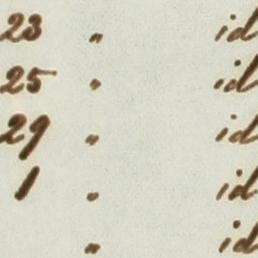 23 " id
25 " id
29 " id
1 " id
" id